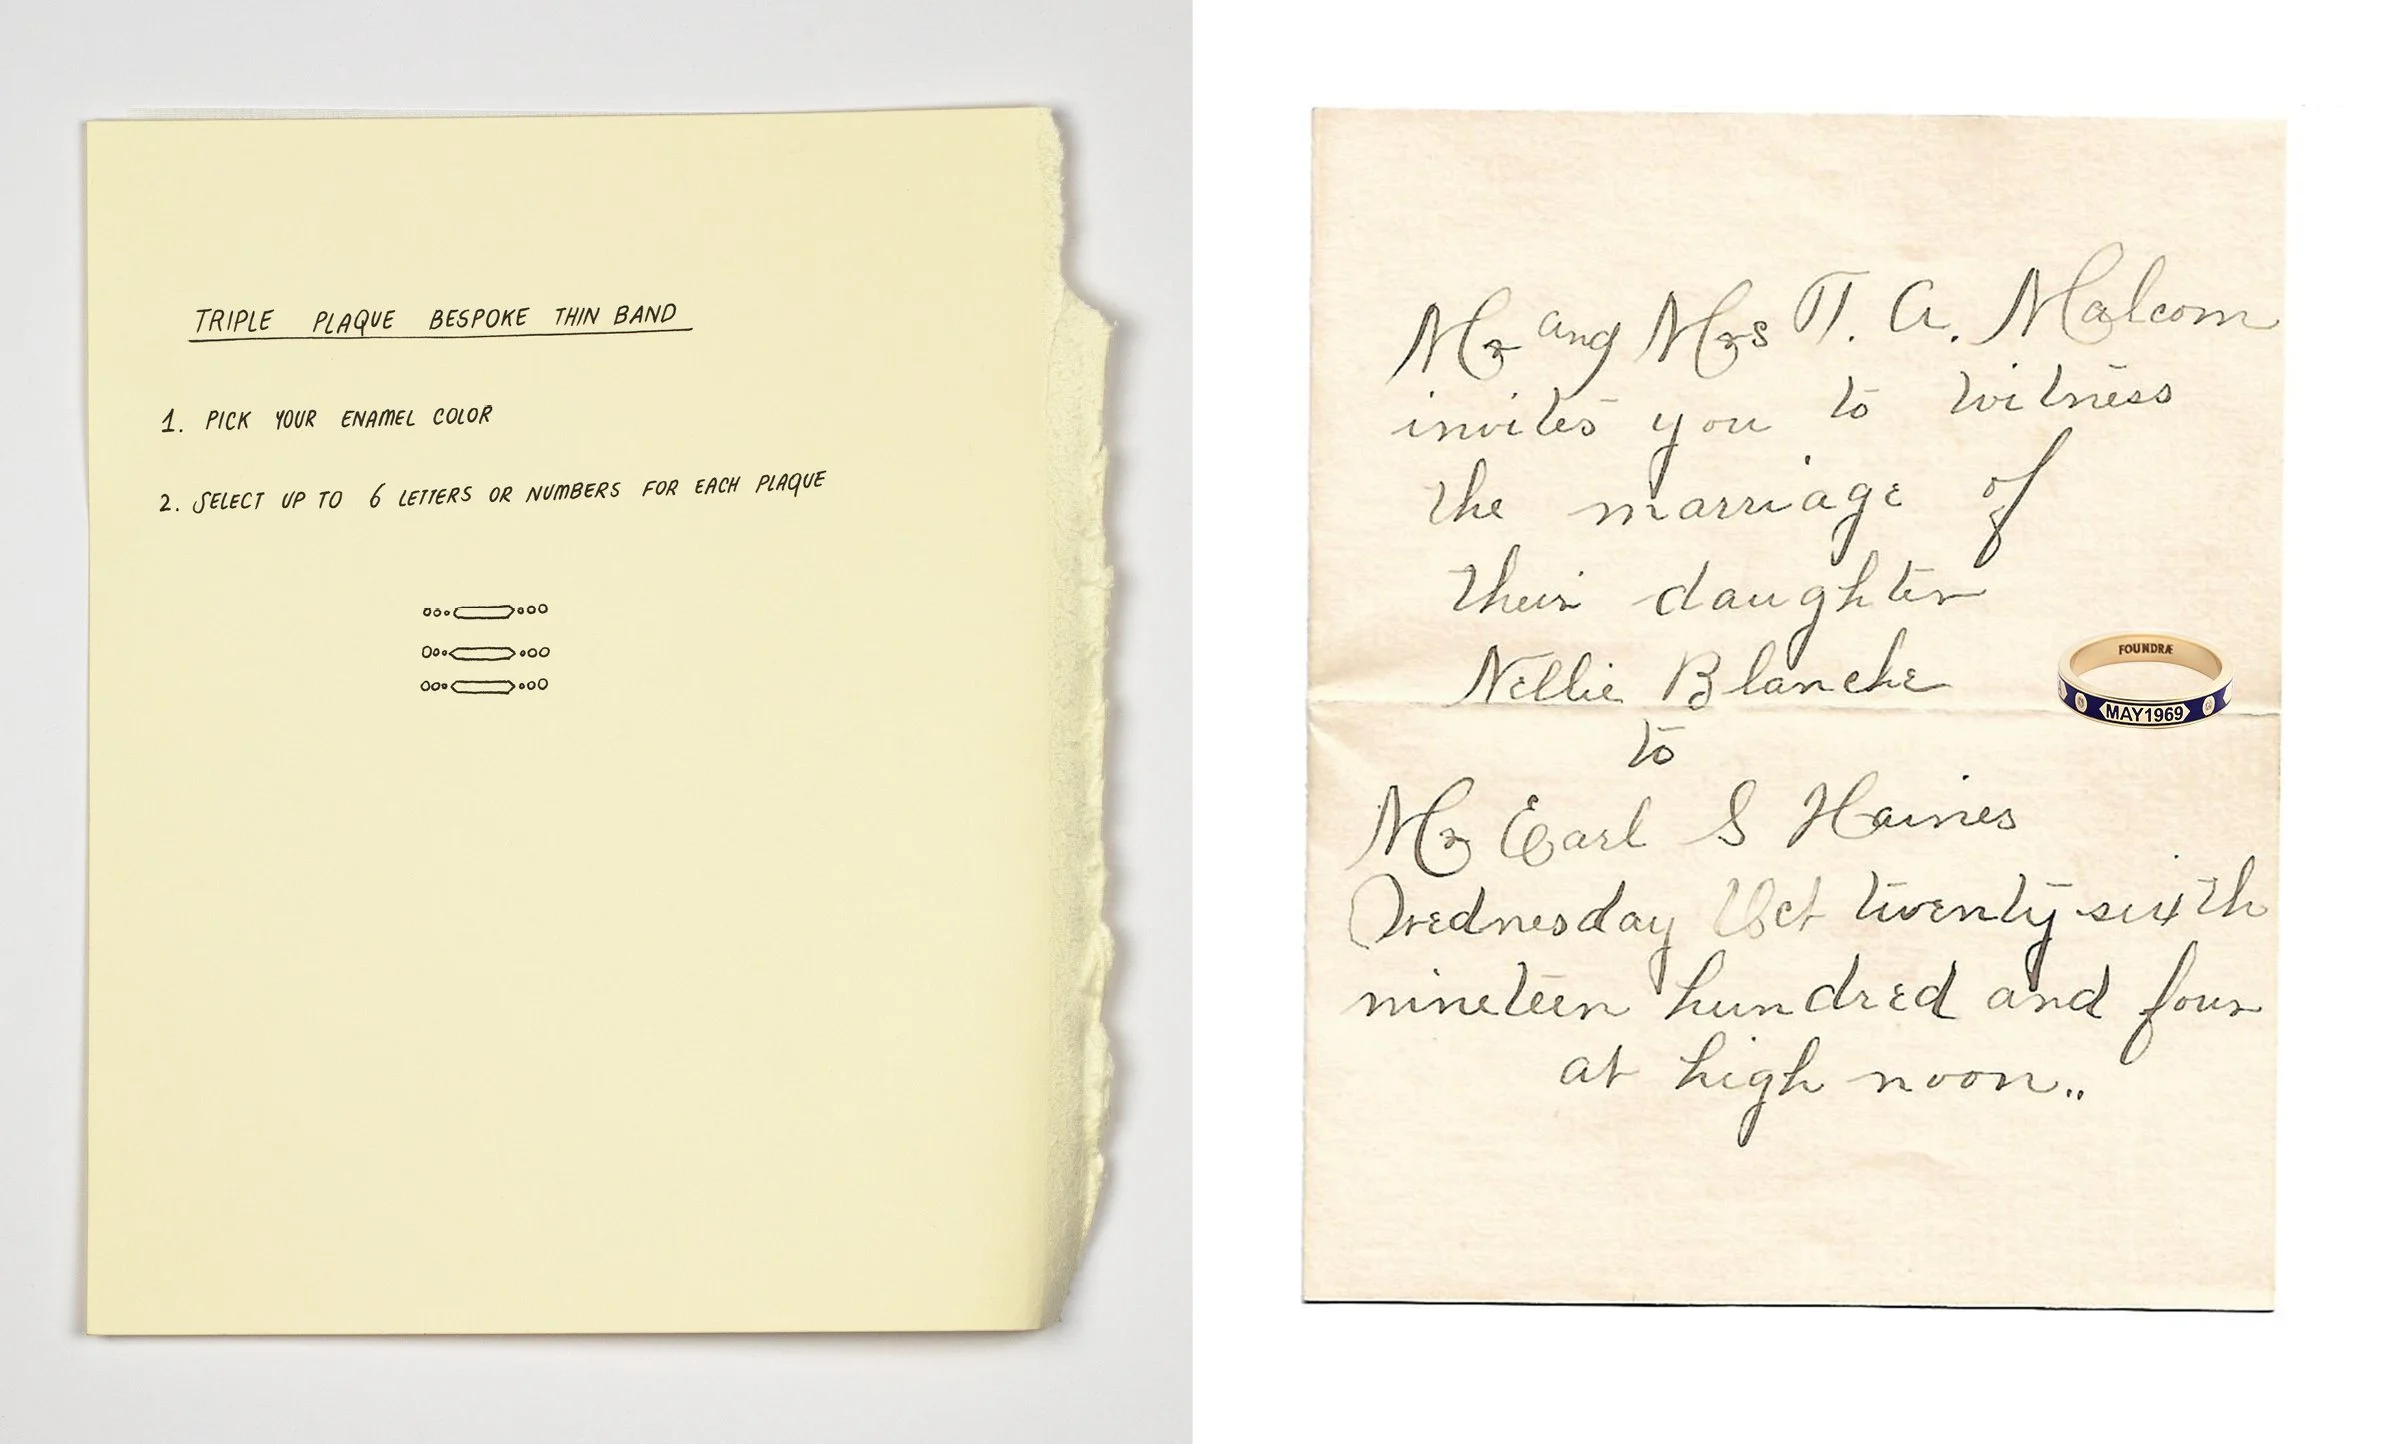 TRIPLE PLAQUE BESPOKE THIN BAND
1. PICK YOUR ENAMEL COLOR
2. SELECT UP TO 6 LETTERS OR NUMBERS FOR EACH PLAQUE
Mr and Mrs T. A. Malcom
invites you to witness
the marriage of
their daughter
Nellie Blanche
to
Mr Earl S Haines
Wednesday Oct twenty-sixth
nineteen hundred and four
at high noon..
FOUNDRÆ
MAY1969